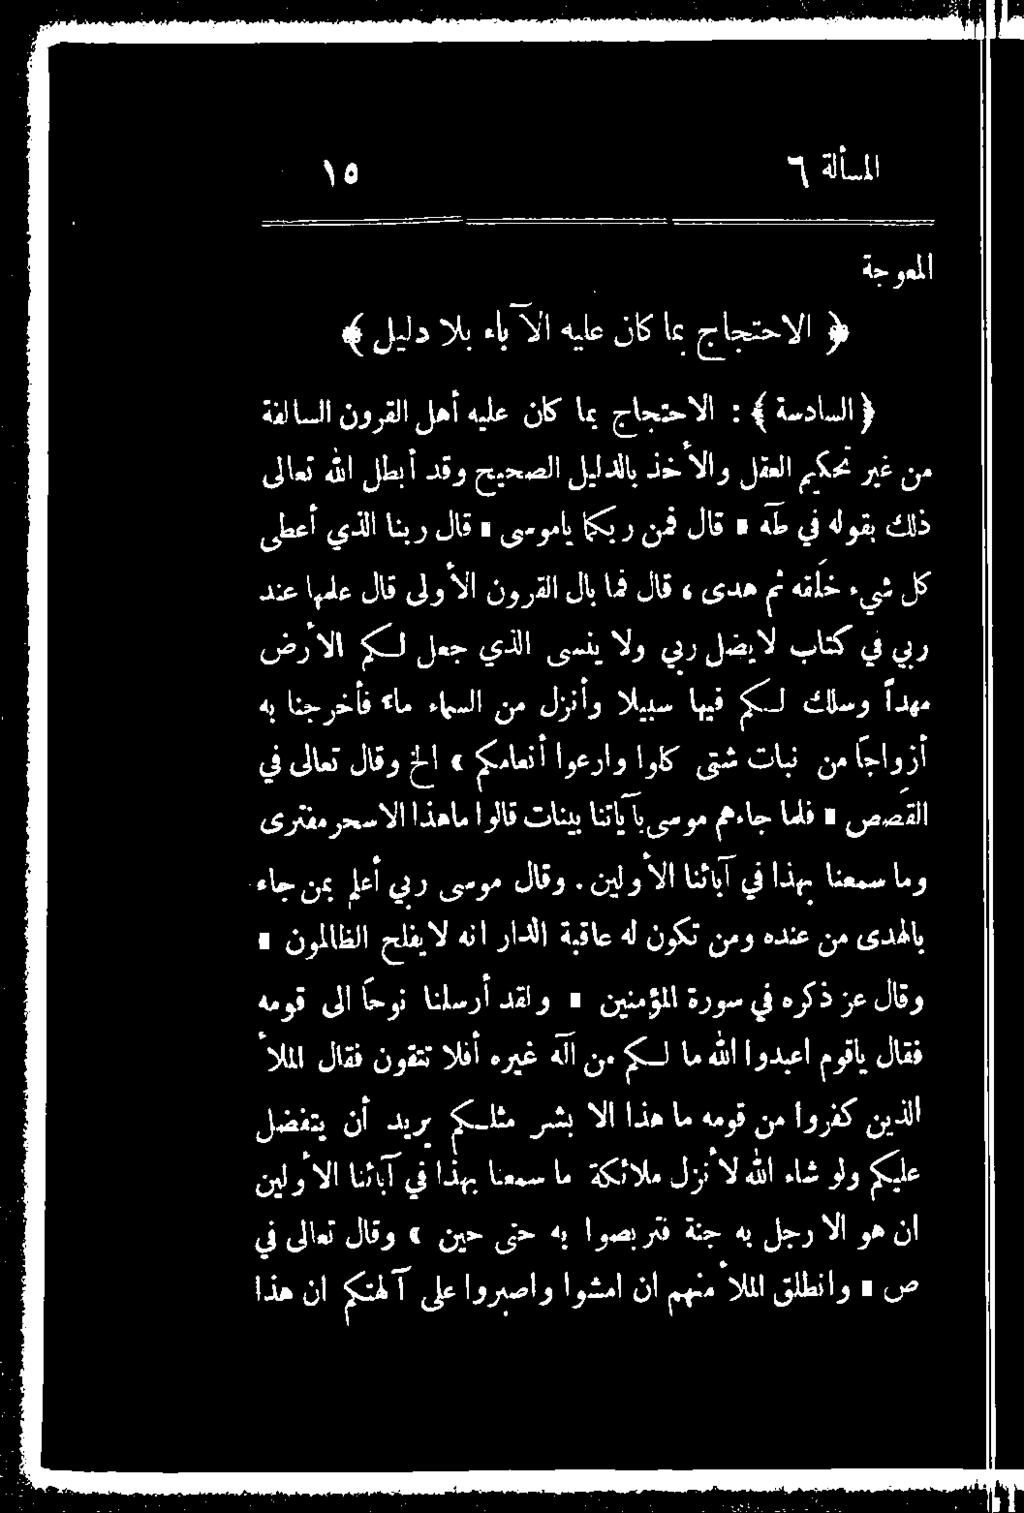 المسألة ٦ ١٥
المعوجة
﴿ الاحتجاج بما كان عليه الآباء بلا دليل ﴾
﴿ السادسة ﴾ : الاحتجاج بما كان عليه أهل القرون السالفة
من غير تحكيم العقل والأخذ بالدليل الصحيح وقد أبطل الله تعالى
ذلك بقوله في طه « قال فمن ربكما ياموسى « قال ربنا الذي أعطى
كل شيء خلقه ثم هدى ، قال فما بال القرون الأولى قال علمها عند
ربي في كتاب لايضل ربي ولا ينسى الذي جعل لكم الأرض
مهداً وسلك لكم فيها سبيلا وأنزل من السماء ماء فأخرجنا به
أزواجاً من نبات شتى كلوا وارعوا أنعامكم » الخ وقال تعالى في
القصص « فلما جاءهم موسى بآياتنا بينات قالوا ماهذا الاسحر مفترى
وما سمعنا بهذا في آبائنا الأولين . وقال موسى ربي أعلم بمن جاء
بالهدى من عنده ومن تكون له عاقبة الدار انه لايفلح الظالمون »
وقال عز ذكره في سورة المؤمنين « ولقد أرسلنا نوحاً الى قومه
فقال ياقوم اعبدوا الله ما لكم من آله غيره أفلا تتقون فقال الملأ
الذين كفروا من قومه ما هذا الا بشر مثلكم يريد أن يتفضل
عليكم ولو شاء الله لأنزل ملائكة ما سمعنا بهذا في آبائنا الأولين
ان هو الا رجل به جنة فتربصوا به حتى حين » وقال تعالى في
ص « وانطلق الملأ منهم ان امشوا واصبروا على آلهتكم ان هذا